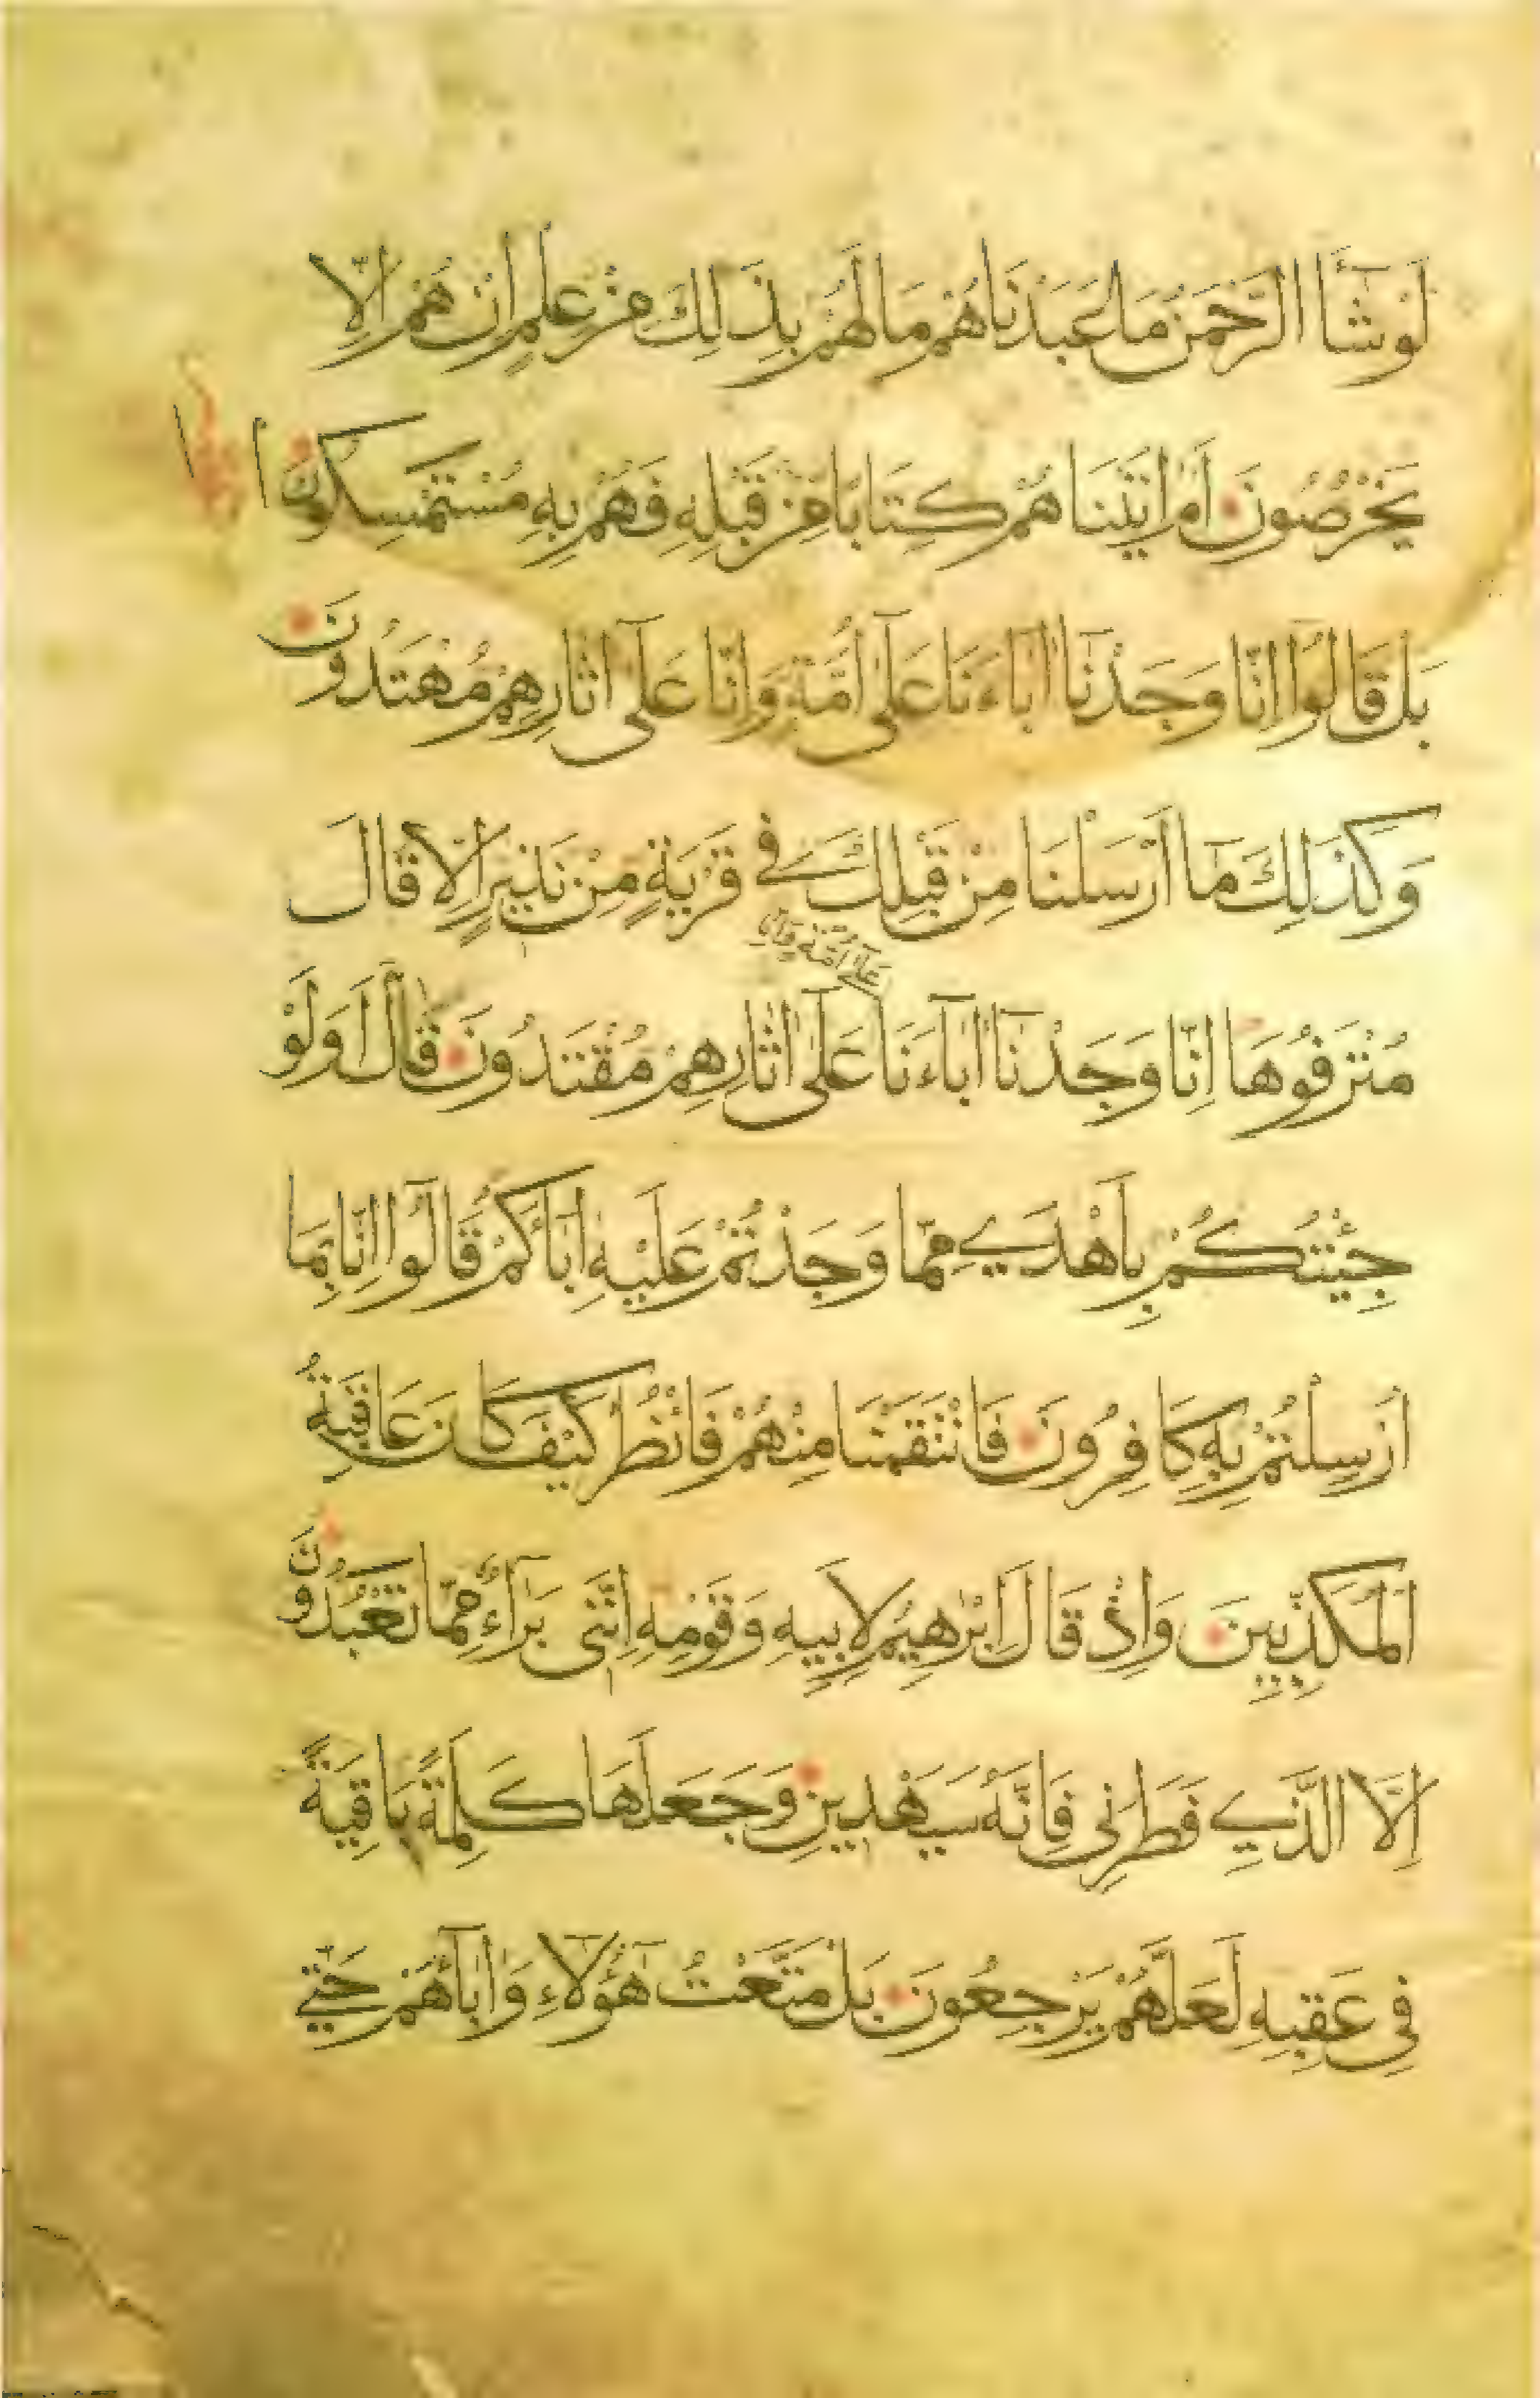 لَوْ شَآءَ الرَّحْمَنُ مَا عَبَدْنَاهُمْ مَا لَهُمْ بِذَالِكَ مِنْ عِلْمٍ اِنْ هُمْ اِلَّا
يَخْرُصُونَ اَمْ اٰتَيْنَاهُمْ كِتَابًا مِنْ قَبْلِهِ فَهُمْ بِهِ مُسْتَمْسِكُونَ
بَلْ قَالُوا اِنَّا وَجَدْنَآ اٰبَاءَنَا عَلٰٓى اُمَّةٍ وَاِنَّا عَلٰٓى اٰثَارِهِمْ مُهْتَدُونَ
وَكَذٰلِكَ مَآ اَرْسَلْنَا مِنْ قَبْلِكَ فِي قَرْيَةٍ مِنْ نَذِيرٍ اِلَّا قَالَ
عَلٰٓى اُمَّةٍ وَاِنَّا
مُتْرَفُوهَا اِنَّا وَجَدْنَآ اٰبَآءَنَا عَلٰٓى اٰثَارِهِمْ مُقْتَدُونَ قَالَ اَوَلَوْ
جِئْتُكُمْ بِاَهْدٰى مِمَّا وَجَدْتُمْ عَلَيْهِ اٰبَآءَكُمْ قَالُوٓا اِنَّا بِمَا
اُرْسِلْتُمْ بِهِ كَافِرُونَ فَانْتَقَمْنَا مِنْهُمْ فَانْظُرْ كَيْفَ كَانَ عَاقِبَةُ
الْمُكَذِّبِينَ وَاِذْ قَالَ اِبْرٰهِيمُ لِاَبِيهِ وَقَوْمِهِ اِنَّنِي بَرَآءٌ مِمَّا تَعْبُدُونَ
اِلَّا الَّذِي فَطَرَنِي فَاِنَّهُ سَيَهْدِينِ وَجَعَلَهَا كَلِمَةً بَاقِيَةً
فِي عَقِبِهِ لَعَلَّهُمْ يَرْجِعُونَ بَلْ مَتَّعْتُ هٰٓؤُلَآءِ وَاٰبَآءَهُمْ حَتّٰى